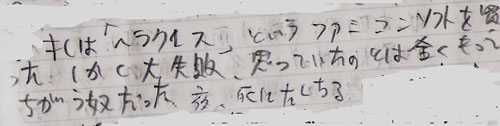 オレは「ヘラクレス」というファミコンソフトを買
った しかし大失敗、思っていたのとは全くもって
ちがう奴だった 夜、死にたくなる